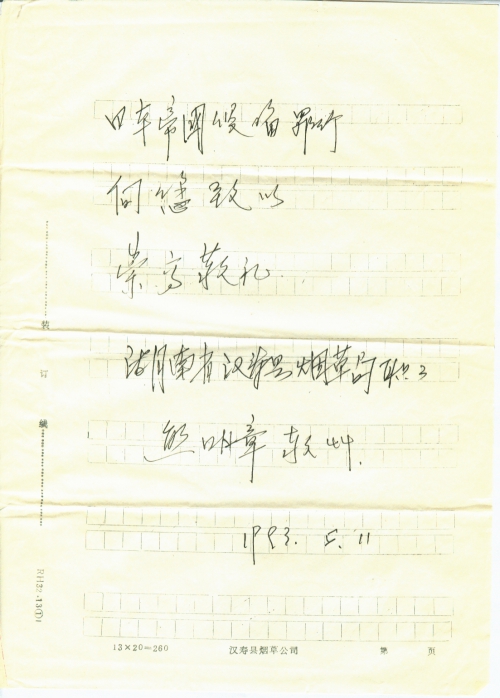 日本帝國侵畧罪行
向您致以
崇高敬礼
湖南省汉寿县烟草局职工
熊明章敬艸
1993.5.11
装
订
线
13×20=260
汉寿县烟草公司
第 页